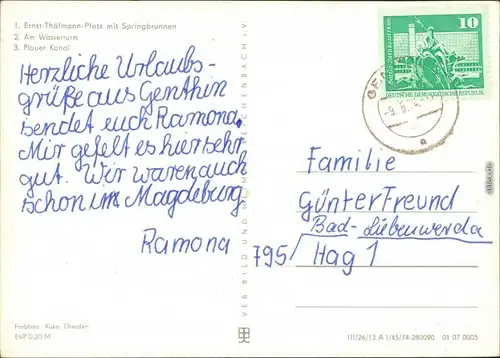 1. Ernst-Thälmann-Platz mit Springbrunnen
2. Am Wasserturm
3. Plauer Kanal
Herzliche Urlaubs-
grüße aus Genthin
sendet euch Ramona.
Mir gefelt es hier sehr
gut. Wir waren auch
schon im Magdeburg
Ramona
Farbfoto: Kuka, Dresden
EVP 0,20 M
VEB BILD UND HEIMAT REICHENBACH i. V.
10
DEUTSCHE DEMOKRATISCHE REPUBLIK
Familie
Günter Freund
Bad-Liebenwerda
795/ Hag 1
III/26/13 A 1/45/74-280090 01 07 0005